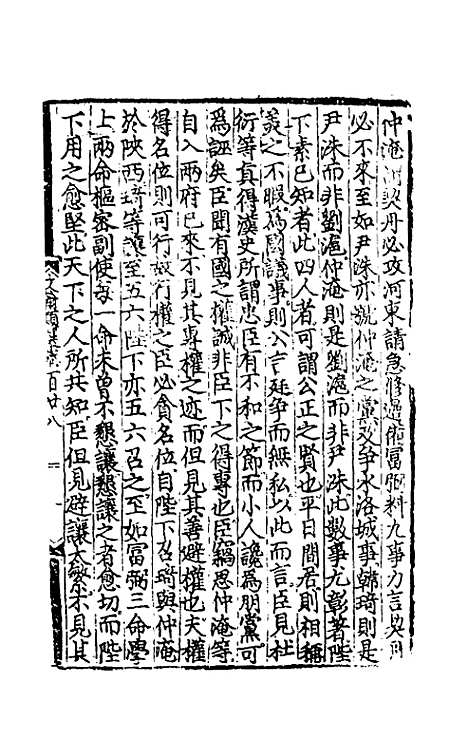 仲淹謂契丹必攻河東請急修邊備富弼料九事力言契丹
必不來至如尹洙亦號仲淹之黨及爭水洛城事韓琦則是
尹洙而非劉滬仲淹則是劉滬而非尹洙此數事尤彰著陛
下素已知者此四人者可謂公正之賢也平日閒居則相稱
美之不暇為國議事則公言廷爭而無私以此而言臣見杜
衍等真得漢史所謂忠臣有不和之節而小人讒為朋黨可
為誣矣臣聞有國之權誠非臣下之得專也臣竊思仲淹等
自入兩府已來不見其專權之迹而但見其善避權也夫權
得名位則可行故行權之臣必貪名位自陛下召琦與仲淹
於陝西琦等讓至五六陛下亦五六召之至如富弼三命學
上兩命樞密副使每一命未曾不懇讓懇讓之者愈切而陛
下用之愈堅此天下之人所共知臣但見避讓太繁不見其
百廿八